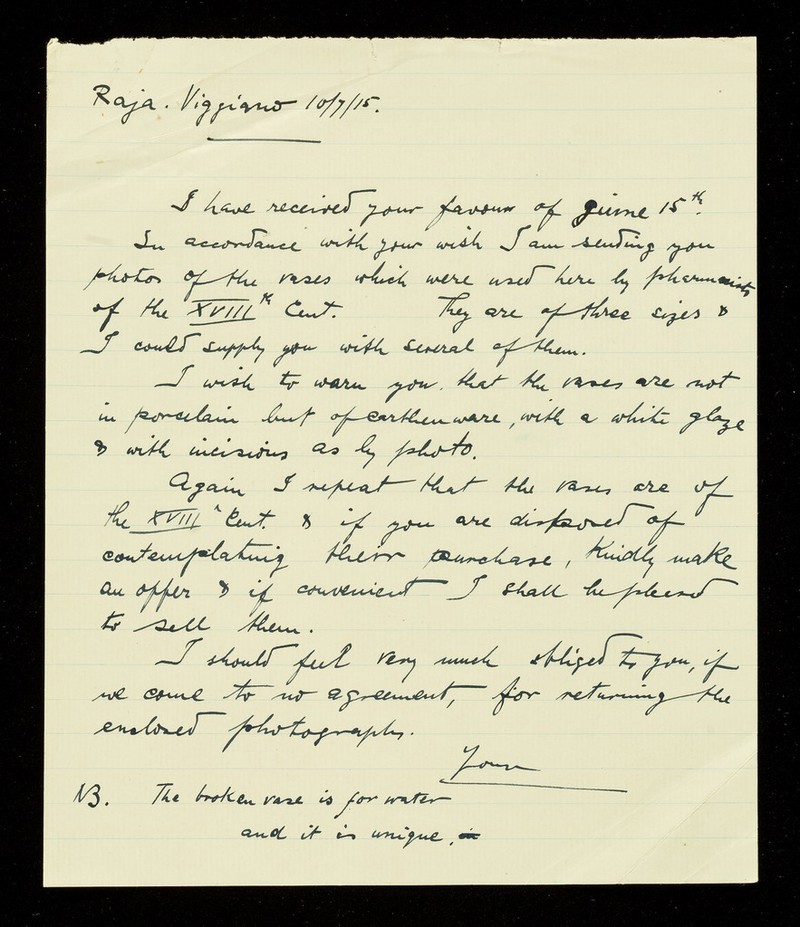 Raja. Viggiano 10/7/15.
I have received your favour of June 15th.
In accordance with your wish I am sending you
photos of the vases which were used here by pharmacists
of the XVIIIth Cent. They are of three sizes &
I could supply you with several of them.
I wish to warn you that the vases are not
in porcelain but of earthenware, with a white glaze
& with incisions as by photo.
Again I repeat that the vases are of
the XVIIIth Cent. & if you are disposed of
contemplating their purchase, kindly make
an offer & if convenient I shall be pleased
to sell them.
I should feel very much obliged to you, if
we come to no agreement, for returning the
enclosed photographs.
Yours
NB. The broken vase is for water
and it is unique, in